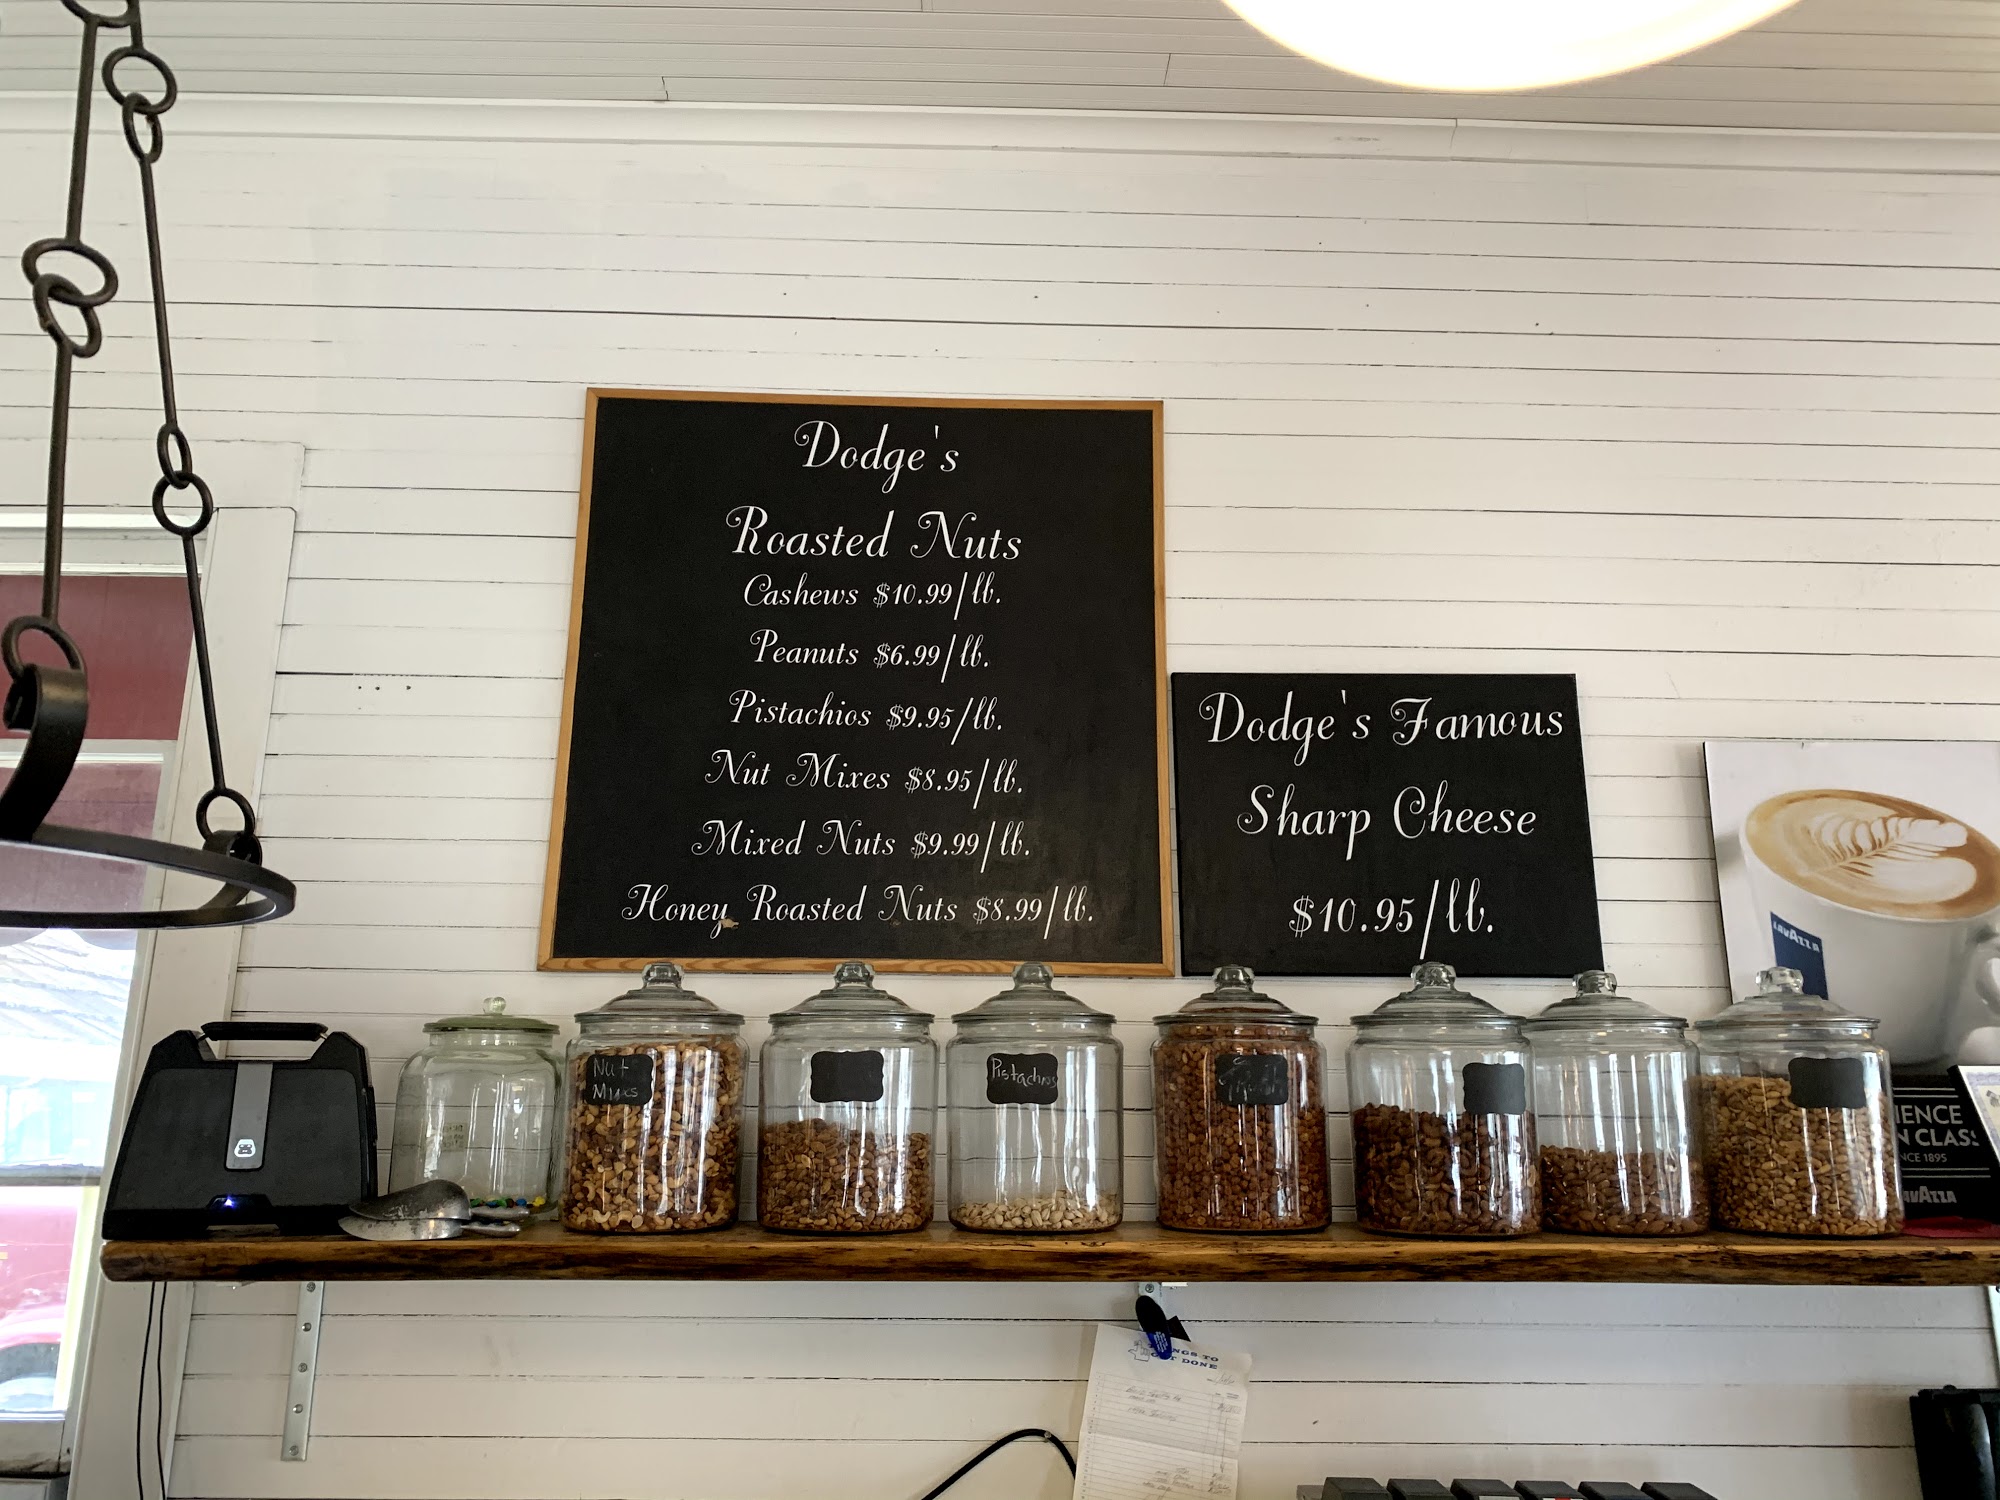 Dodge's
Roasted Nuts
Cashews $10.99/lb.
Peanuts $6.99/lb.
Pistachios $9.95/lb.
Nut Mixes $8.95/lb.
Mixed Nuts $9.99/lb.
Honey Roasted Nuts $8.99/lb.
Dodge's Famous
Sharp Cheese
$10.95/lb.
LAVAZZA
Nut
Mixes
Pistachios
IENCE
N CLASS
NCE 1895
AVAZZA
NGS TO
T DONE